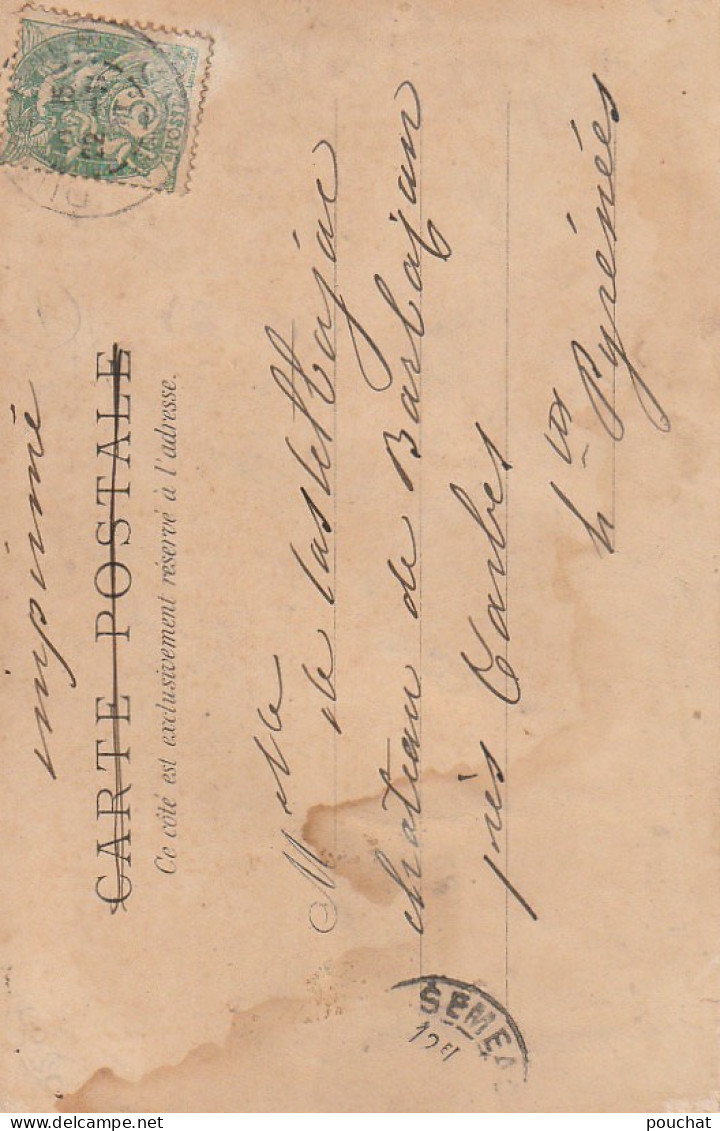 imprimé
CARTE POSTALE
Ce côté est exclusivement réservé à l'adresse.
Mlle
de Castelbajac
château de Barbazan
près Tarbes
htes Pyrénées
SEMEA
pouchat